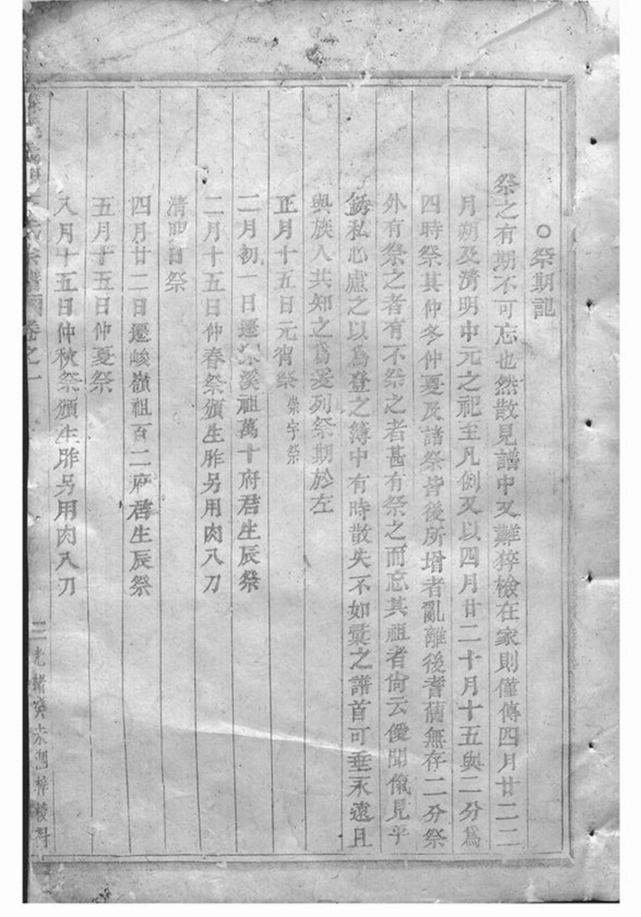 祭期記
祭之有期不可忘也然散見譜中又難猝檢在家則僅傳四月廿二二
月朔及清明中元之祀至凡例又以四月廿二十月十五與二分爲
四時祭其仲冬仲夏及諸祭皆後所增者亂離後耆舊無存二分祭
外有祭之者有不祭之者甚有祭之而忘其祖者尙云僾聞愾見乎
私心慮之以爲登之簿中有時散失不如彙之譜首可垂永遠且
與族人共知之爲爰列祭期於左
正月十五日元宵祭 崇字祭
二月初一日遷溪祖萬十府君生辰祭
二月十五日仲春祭頒生胙另用肉八刀
清明日祭
四月廿二日遷峻嶺祖百二府君生辰祭
五月十五日仲夏祭
八月十五日仲秋祭頒生胙另用肉八刀
氏宗譜 卷之一 三 光緒癸未